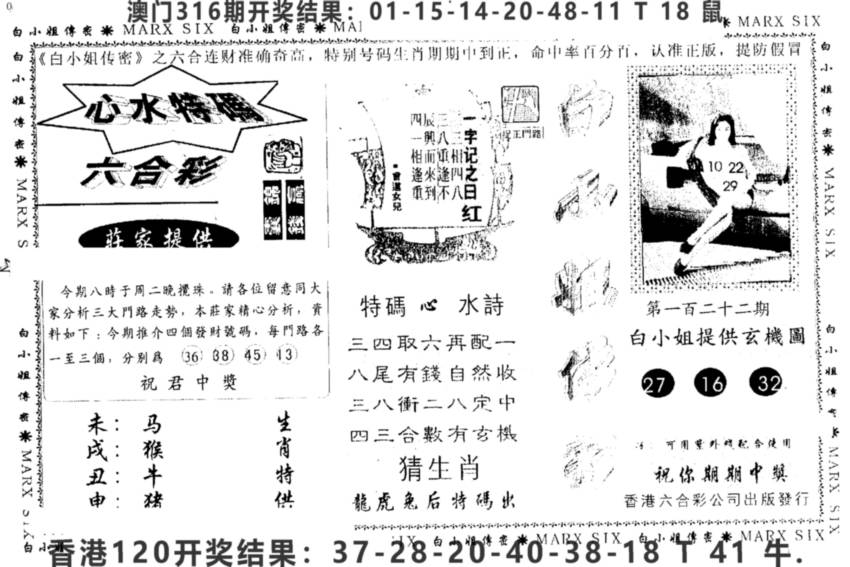 澳门316期开奖结果：01-15-14-20-48-11 T 18 鼠
白小姐傳密 ✳ MARX SIX 白小姐傳密 ✳ MAI
✳ MARX SIX
《白小姐传密》之六合连财准确奇高，特别号码生肖期期中到正，命中率百分百，认准正版，提防假冒
心水特碼
六合彩
莊家提供
今期八時于周二晚攪珠。請各位留意同大
家分析三大門路走勢，本莊家精心分析，資
料如下：今期推介四個發財號碼，每門路各
一至三個，分別爲 36 38 45 13
祝君中獎
未：马
戌：猴
丑：牛
申：猪
生肖特供
一字记之曰 红
三三相四八
三八重逢不
辰興而來到
四一相逢重
曾道女兒
特碼心水詩
三四取六再配一
八尾有錢自然收
三八衝二八定中
四三合數有玄機
猜生肖
龍虎兔后特碼出
白小姐傳密
10 22
29
第一百二十二期
白小姐提供玄機圖
27 16 32
可用紫外綫配合使用
祝你期期中獎
香港六合彩公司出版發行
白小姐傳密 ✳ MARX S
白小姐傳密 ✳ MARX
白小姐傳密 ✳ MARX SIX
白小姐傳密 ✳ MARX SIX
白小姐傳密 ✳ MARX SIX 白小姐傳密 ✳ MARX SIX
香港120开奖结果：37-28-20-40-38-18 T 41 牛.